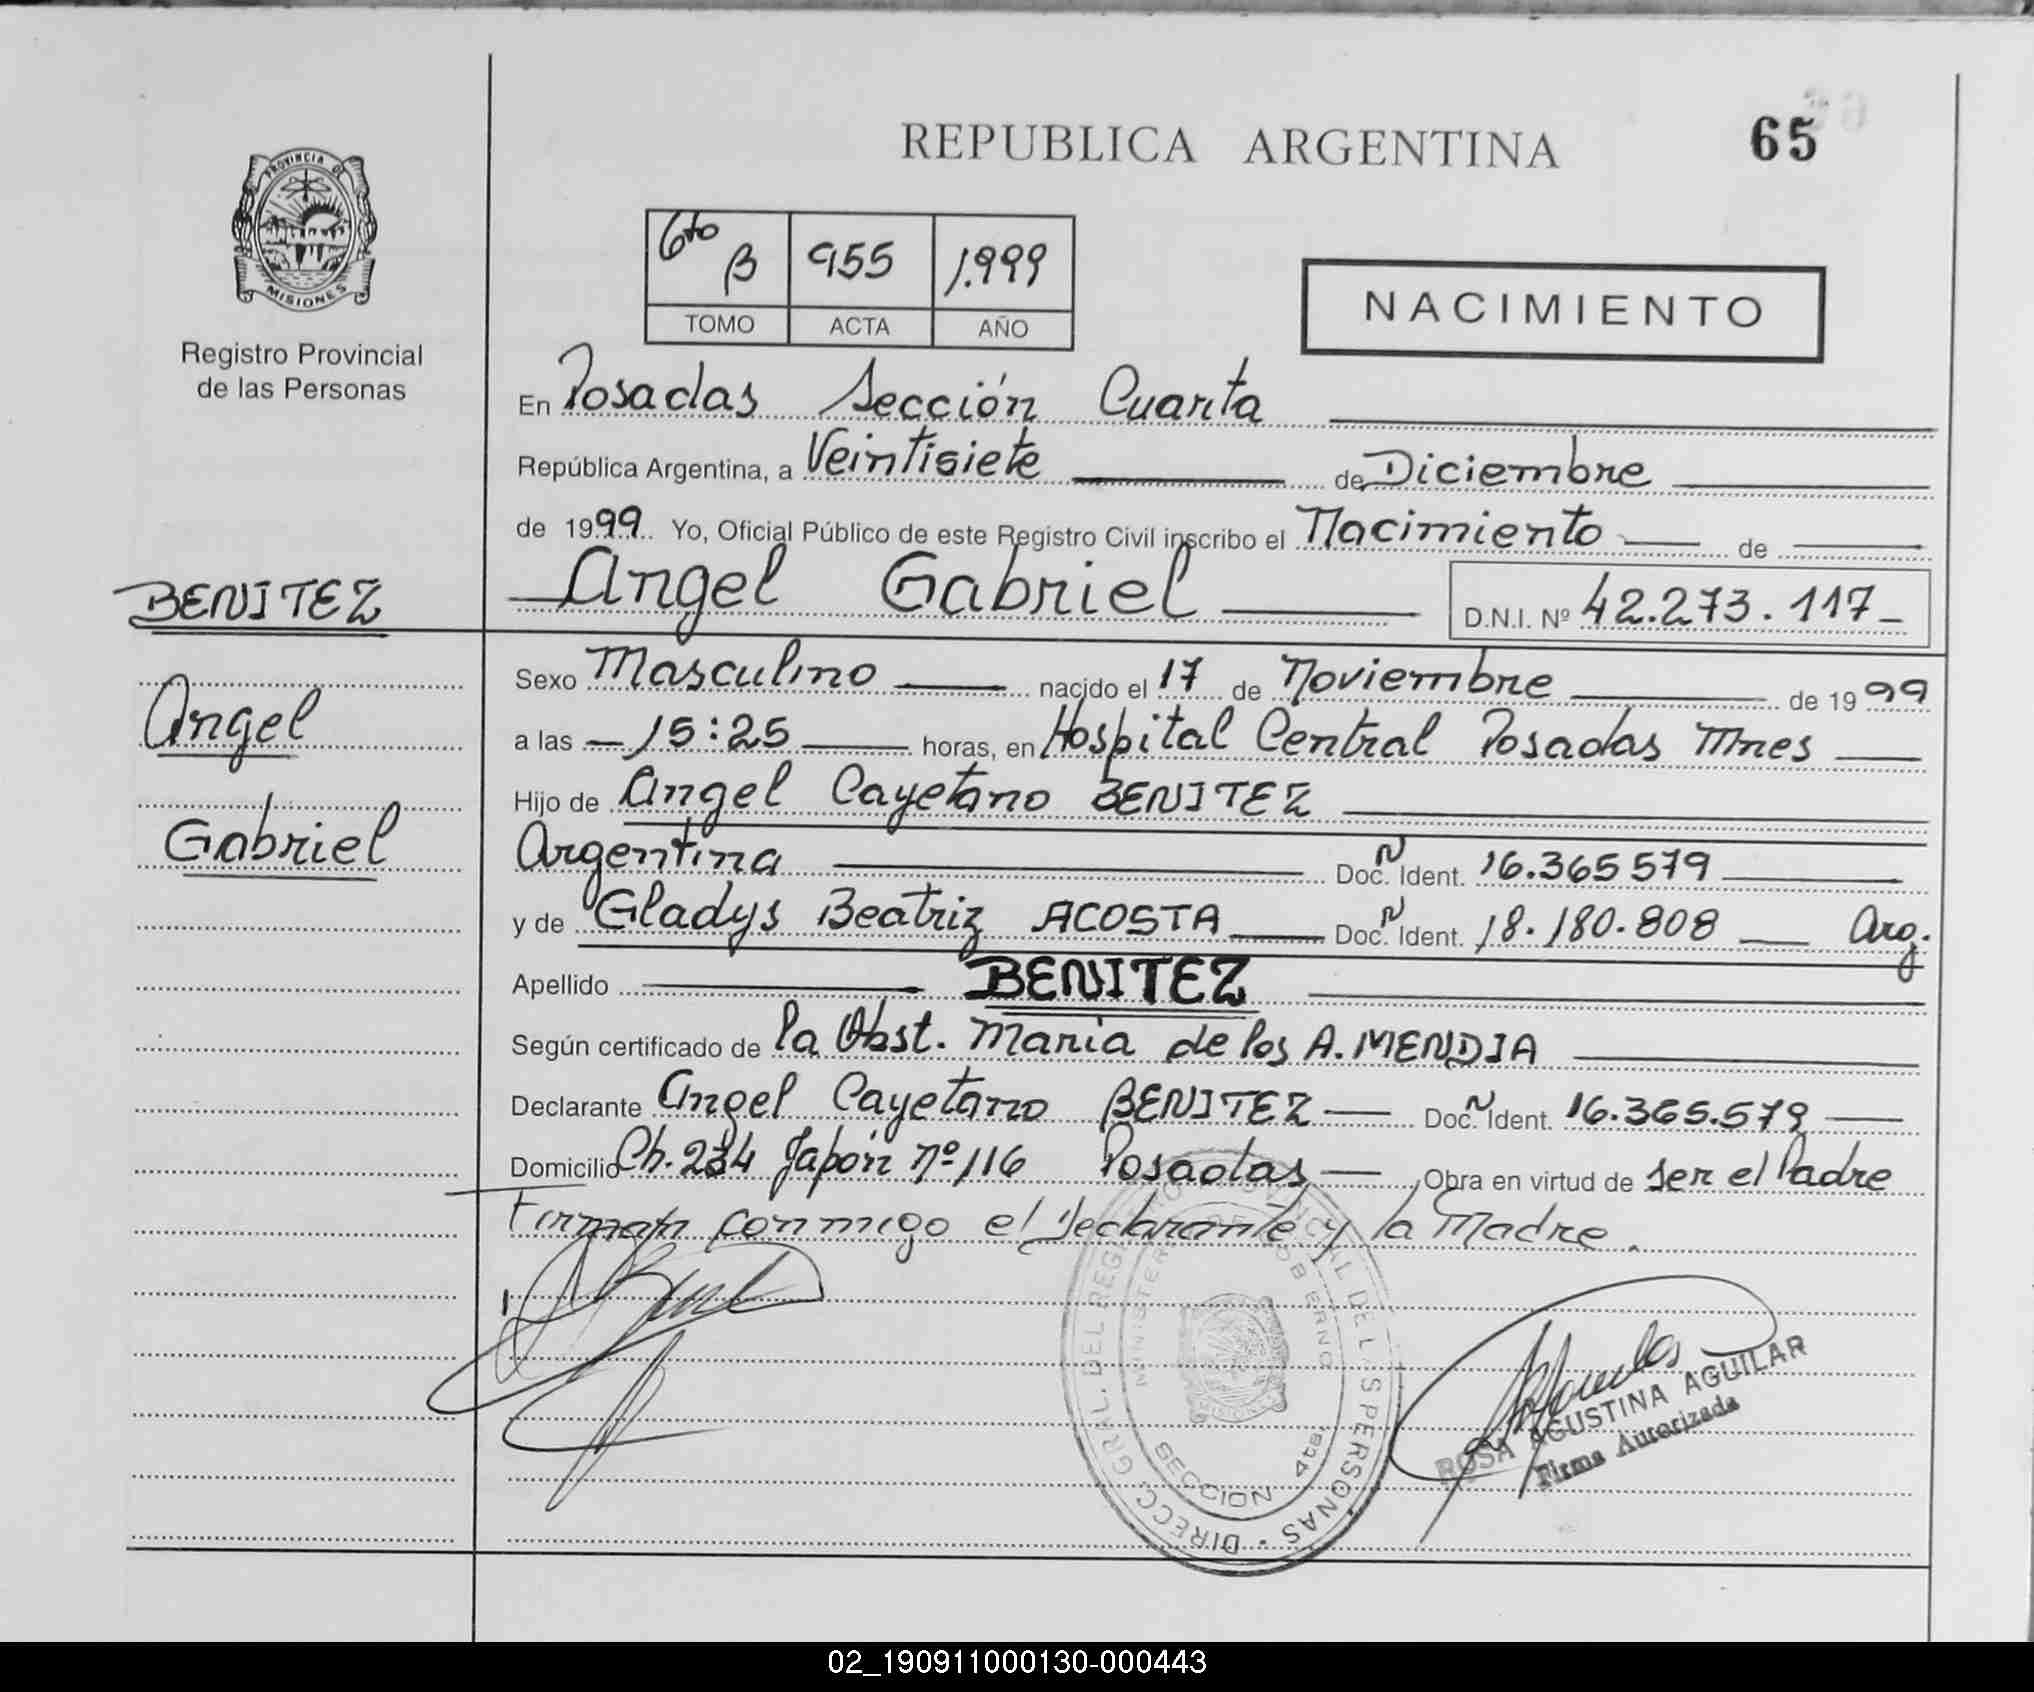 REPUBLICA ARGENTINA
65
PROVINCIA DE
MISIONES
Registro Provincial
de las Personas
6to B 955 1.999
TOMO ACTA AÑO
NACIMIENTO
En Posadas Sección Cuarta
República Argentina, a Veintisiete de Diciembre
de 1999 Yo, Oficial Público de este Registro Civil inscribo el Nacimiento de
BENITEZ
Angel Gabriel D.N.I. Nº 42.273.117
Angel
Gabriel
Sexo Masculino nacido el 17 de Noviembre de 1999
a las 15:25 horas, en Hospital Central Posadas Mnes
Hijo de Angel Cayetano BENITEZ
Argentina Doc. N Ident. 16.365579
y de Gladys Beatriz ACOSTA Doc. N Ident. 18.180.808 Arg.
Apellido BENITEZ
Según certificado de la Obst. Maria de los A. MENDIA
Declarante Angel Cayetano BENITEZ Doc. N Ident. 16.365.579
Domicilio Ch. 234 Japón nº 116 Posadas Obra en virtud de ser el Padre
Firman conmigo el Declarante y la Madre.
DIRECC. GRAL. DEL REGISTRO PROVINCIAL DE LAS PERSONAS
MINISTERIO DE GOBIERNO
SECCION 4ta.
ROSA AGUSTINA AGUILAR
Firma Autorizada
02_190911000130-000443